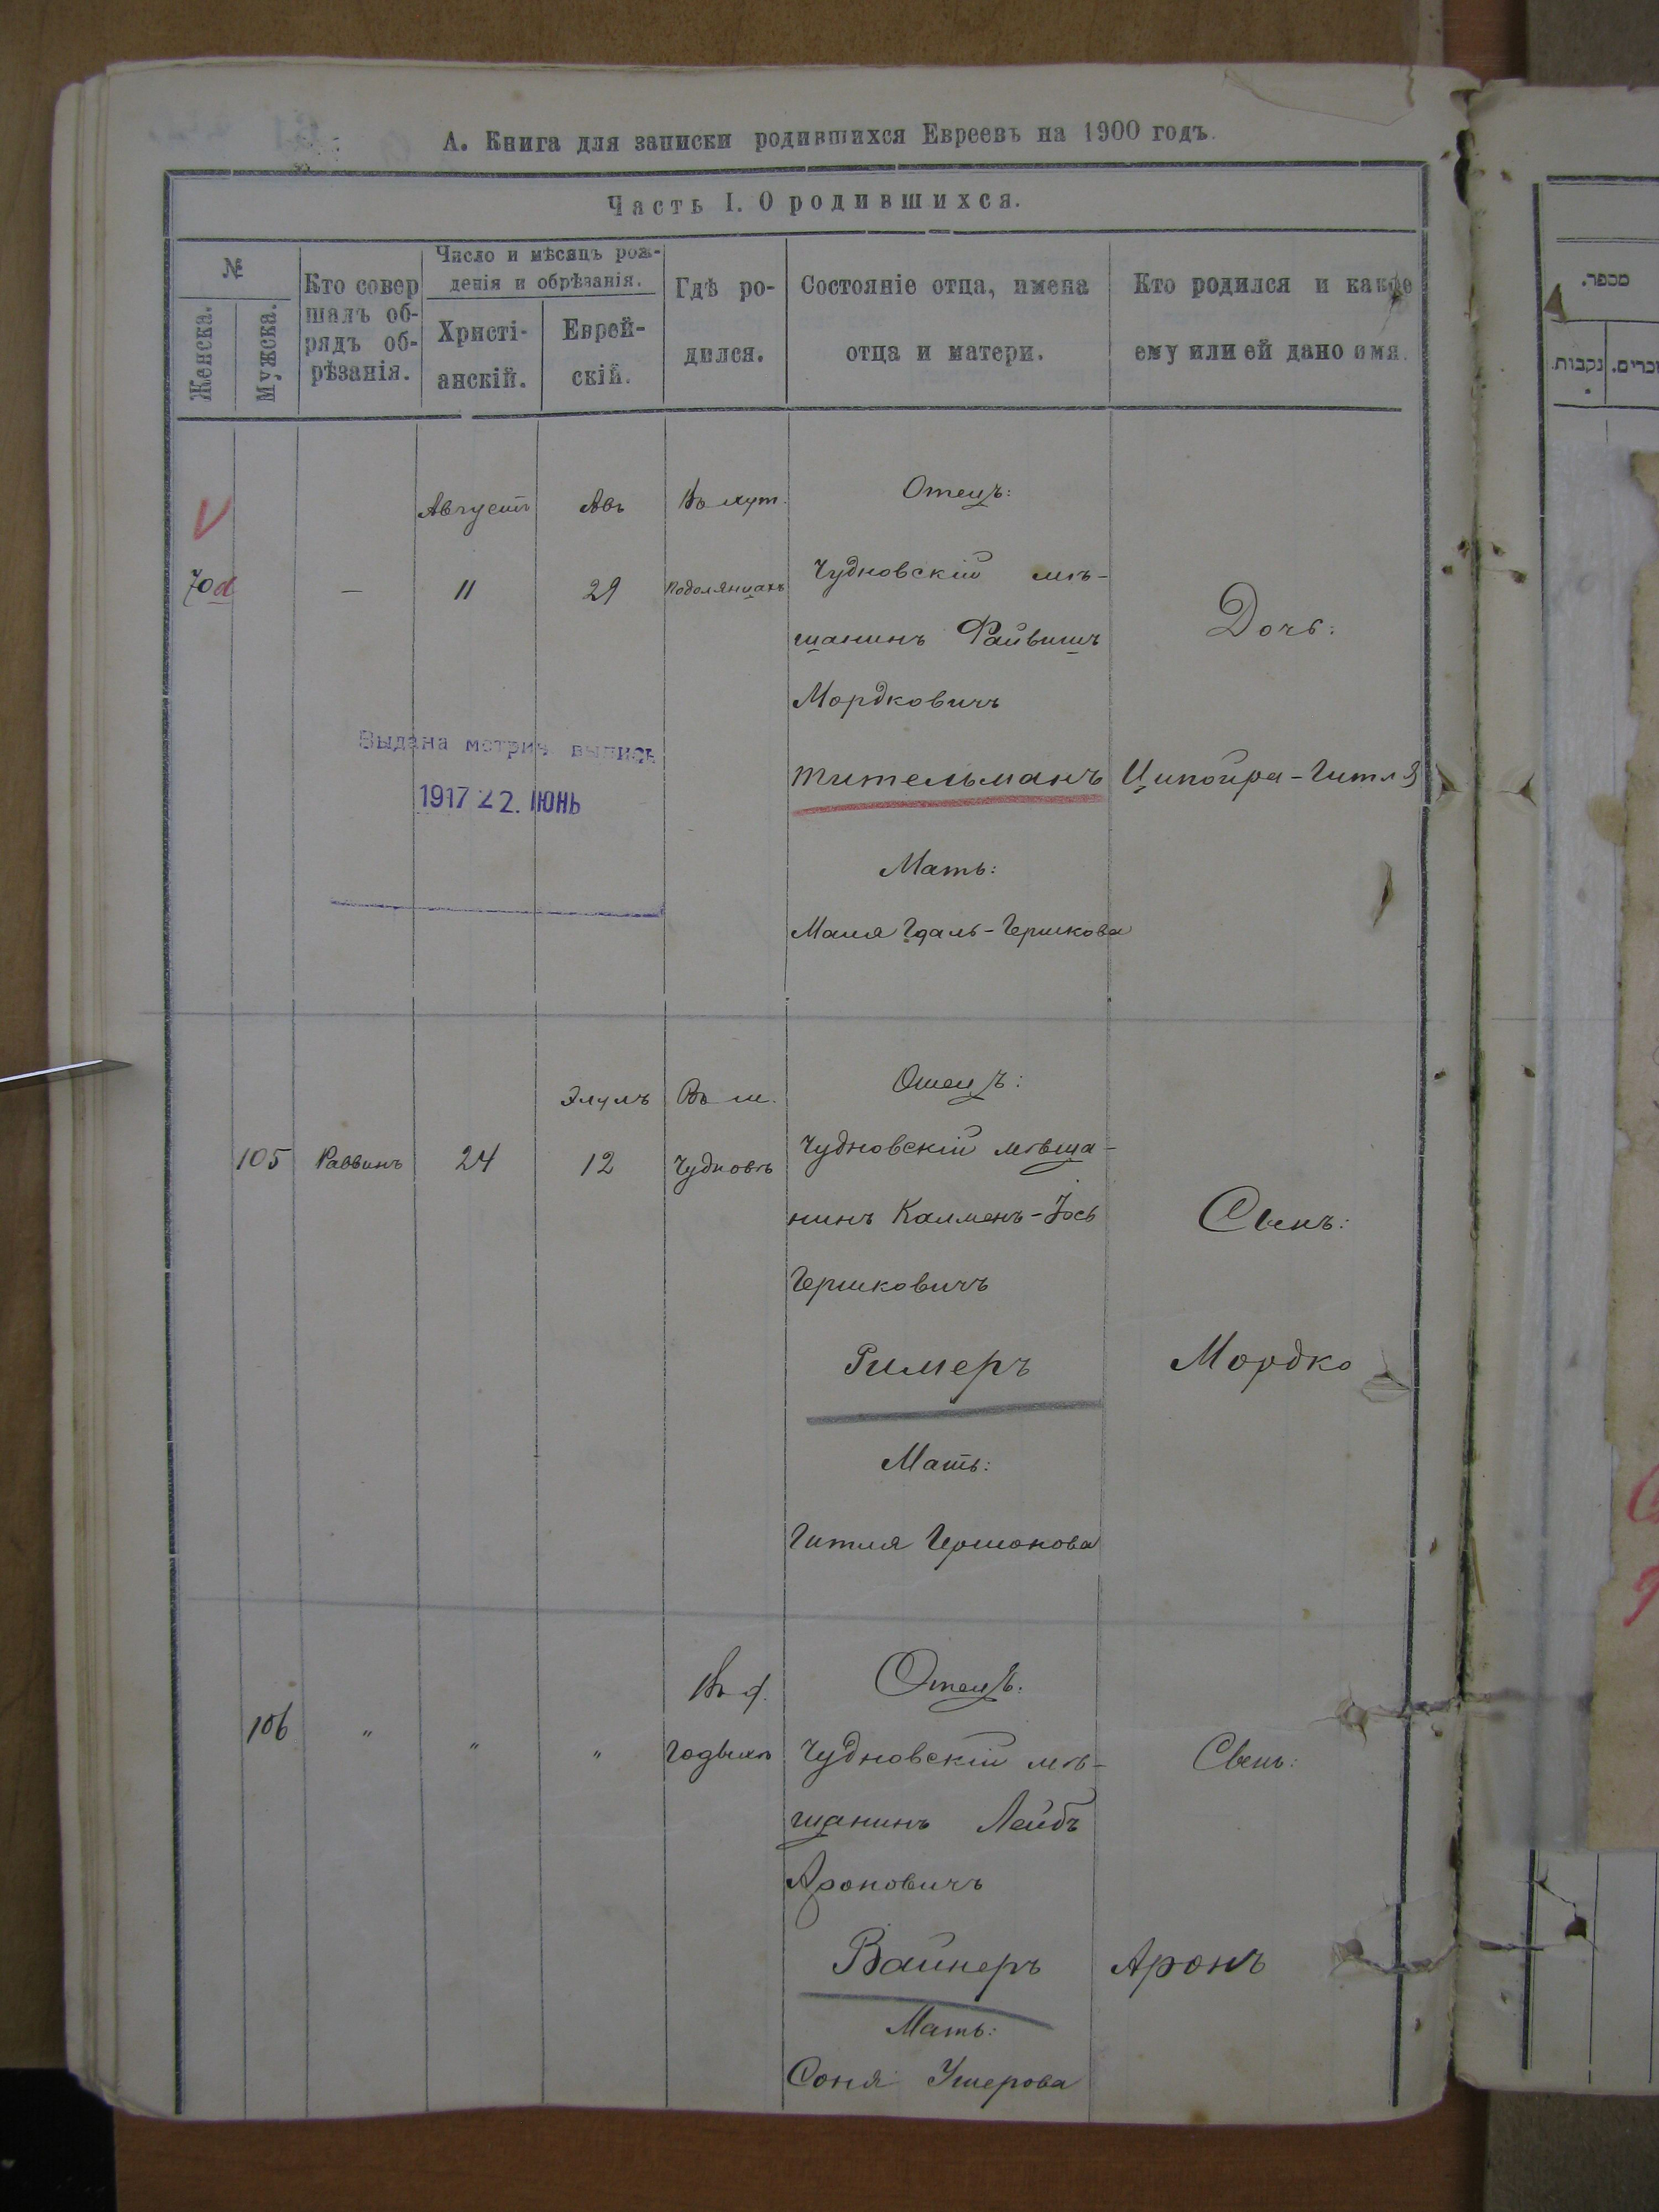 А. Книга для записки родившихся Евреевъ на 1900 годъ.
Часть I. О родившихся.
№
Женска.
Мужска.
Кто совер
шалъ об-
рядъ об-
рѣзанія.
Число и мѣсяцъ рож-
денія и обрѣзанія.
Христі-
анскій.
Еврей-
скій.
Гдѣ ро-
дился.
Состояніе отца, имена
отца и матери.
Кто родился и какое
ему или ей дано имя.
V
70а
—
Августъ
11
Авъ
29
Въ хут.
Подолянцахъ
Отецъ:
Чудновскій мѣ-
щанинъ Файвишъ
Мордковичъ
Тительманъ
Мать:
Маня Гдаль-Гершкова
Дочь:
Ципойра-Гитля
Выдана метрич выпись
1917 22. ІЮНЬ
105
Раввинъ
24
Элулъ
12
Въ м.
Чудновѣ
Отецъ:
Чудновскій мѣща-
нинъ Калменъ-Іось
Гершковичъ
Римеръ
Мать:
Гитля Гершонова
Сынъ:
Мордко
106
"
"
"
Годыхѣ
Отецъ:
Чудновскій мѣ-
щанинъ Лейбъ
Ароновичъ
Вайнеръ
Мать:
Соня Ушерова
Сынъ:
Аронъ
מספר.
נקבות.
זכרים.